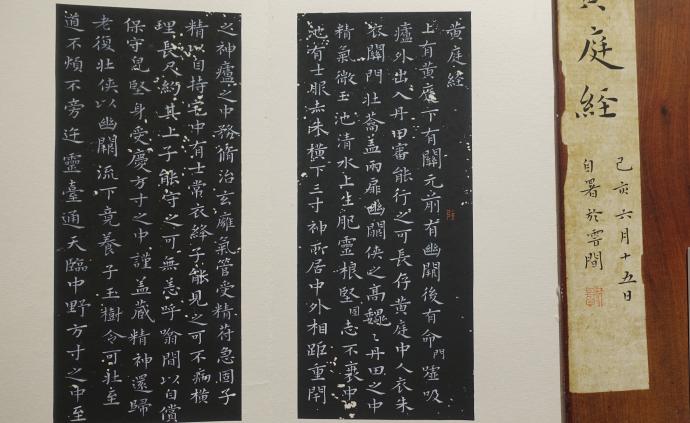 黄庭経
上有黄庭下有關元前有幽闕後有命門噓吸
廬外出入丹田審能行之可長存黄庭中人衣朱
衣關門壯蘥盖兩扉幽闕俠之高巍巍丹田之中
精氣微玉池清水上生肥靈根堅固志不衰中
池有士服赤朱横下三寸神所居中外相距重閇
之神廬之中務脩治玄廱氣管受精符急固子
精以自持宅中有士常衣絳子能見之可不病横
理長尺約其上子能守之可無恙呼噏閒以自償
保守皃堅身受慶方寸之中謹盖蔵精神還歸
老復壯俠以幽闕流下竟養子玉樹令可壯至
道不煩不旁迕靈臺通天臨中野方寸之中至
庭経
己亥六月十五日
自署於雲間